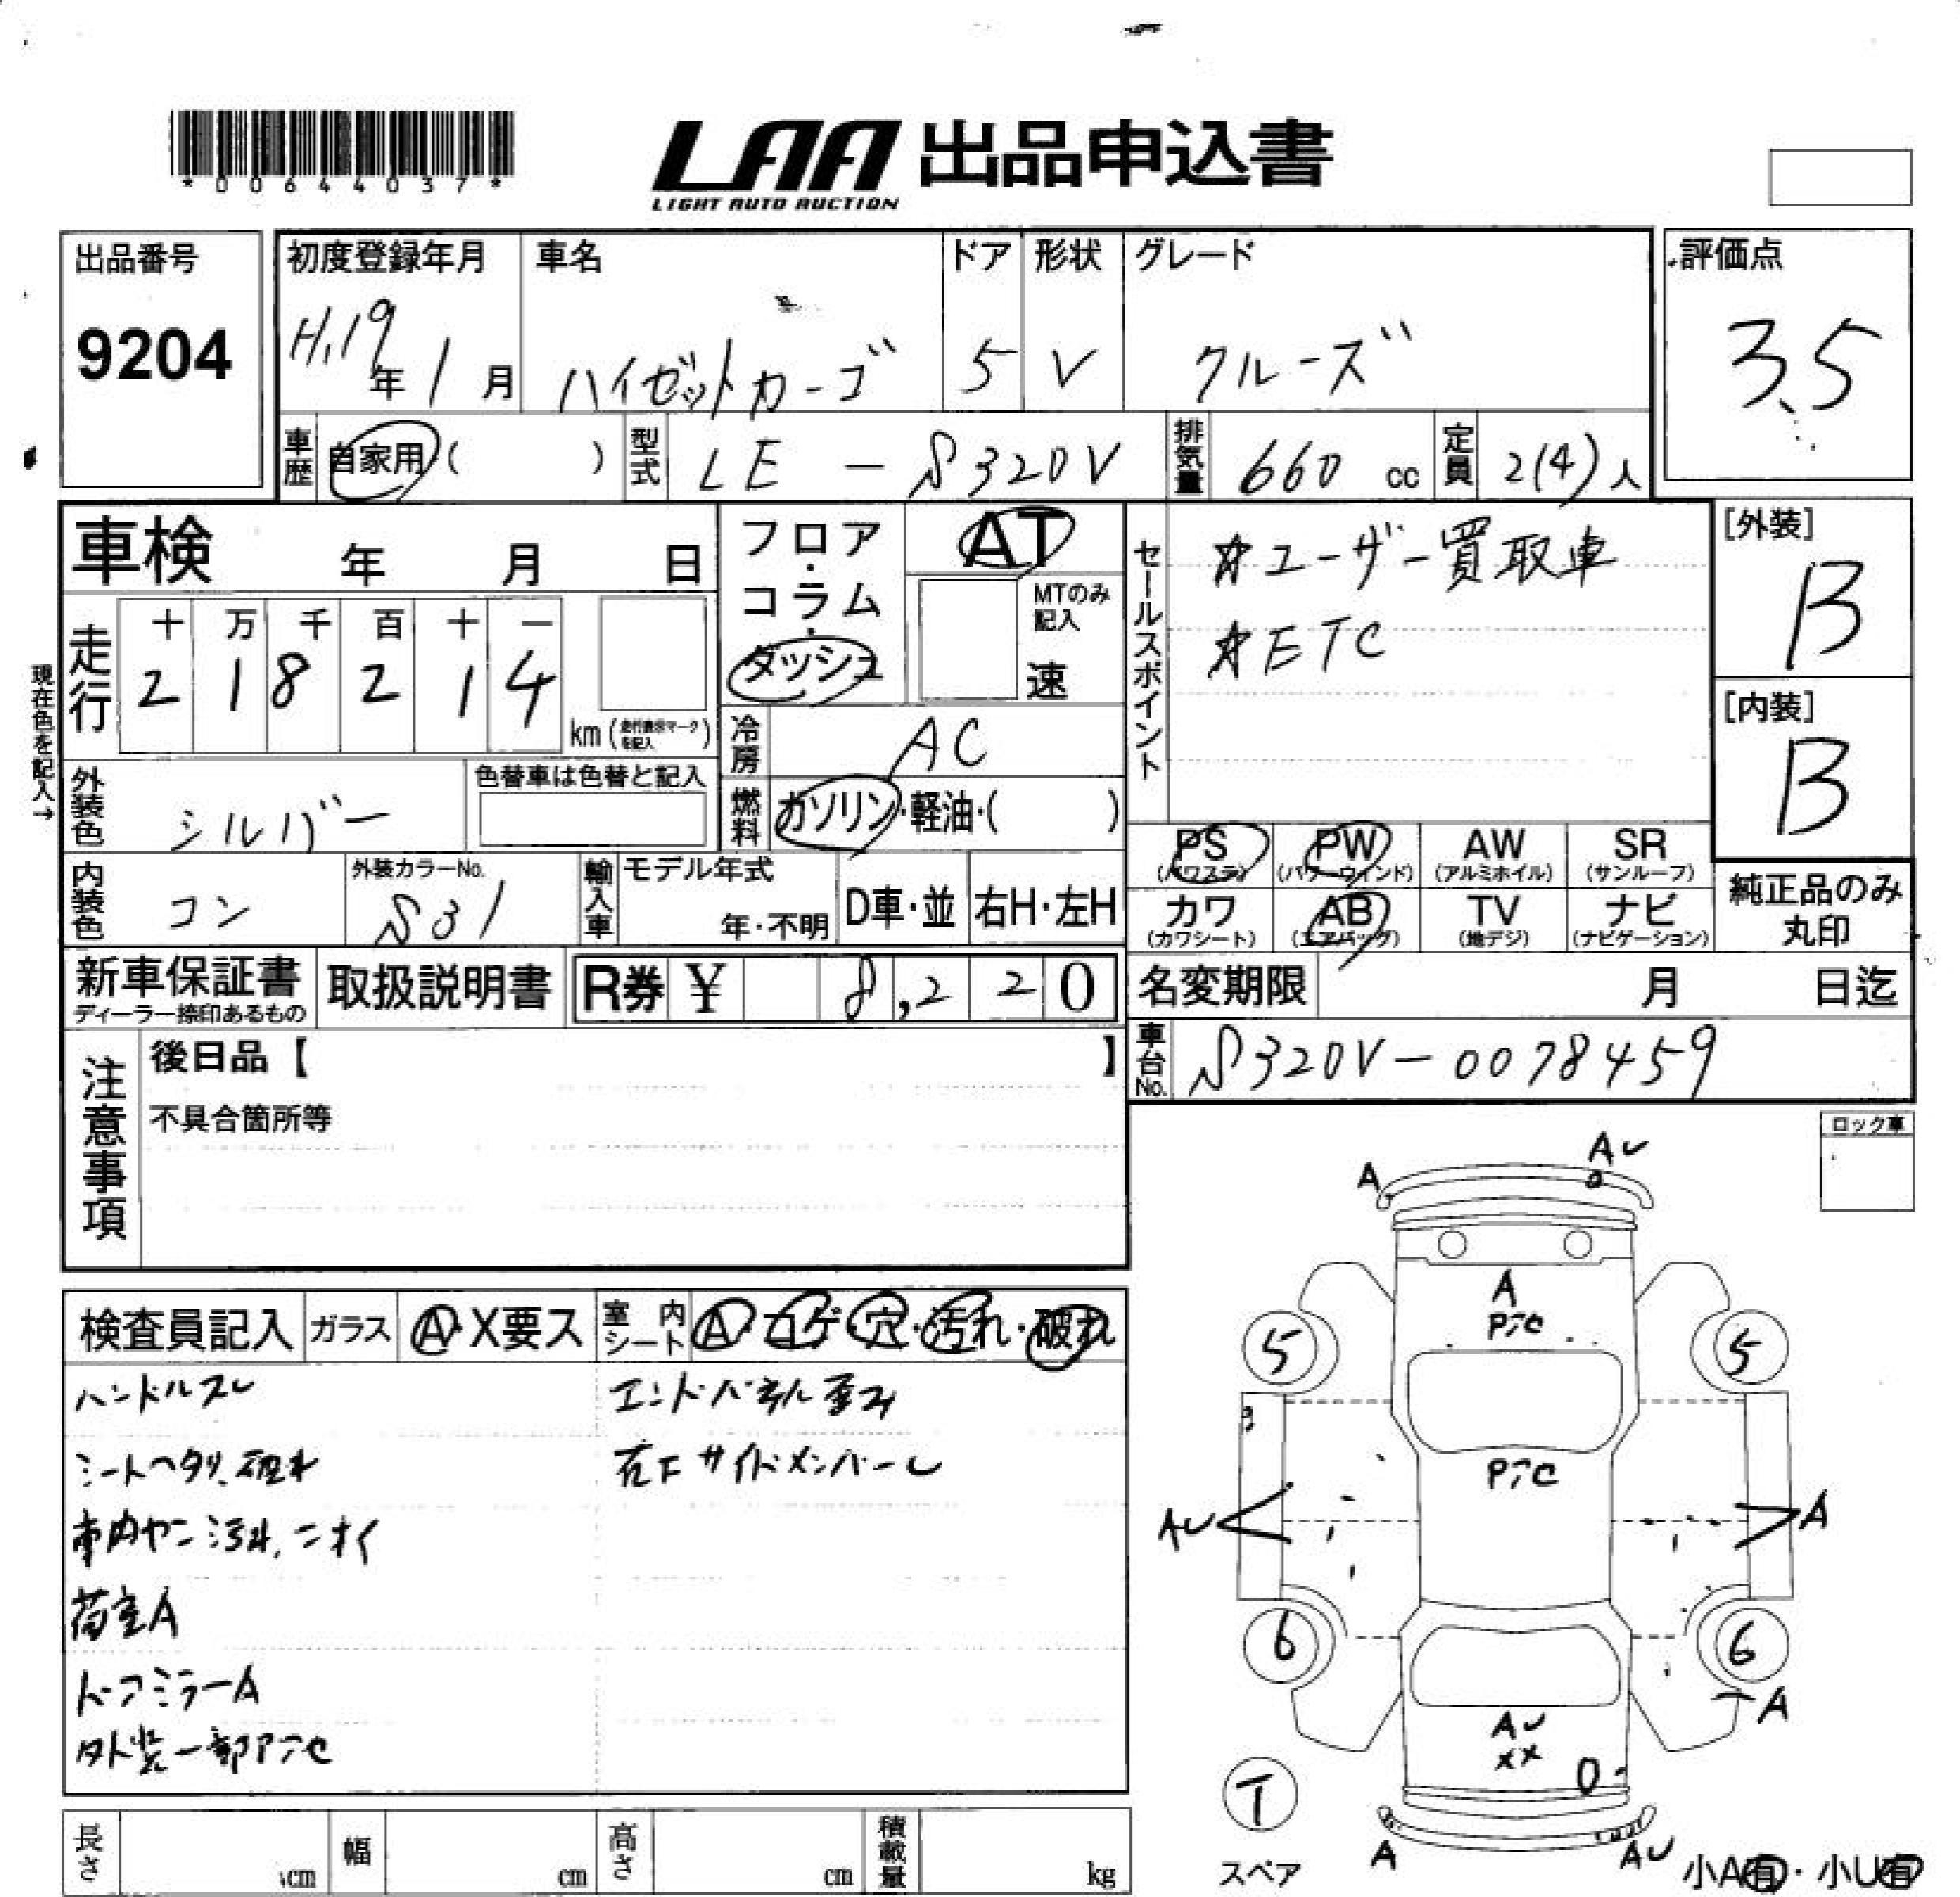 *00644037*
LAA 出品申込書
LIGHT AUTO AUCTION
出品番号
9204
初度登録年月
H.19年 1月
車名
ハイゼットカーゴ
ドア
5
形状
V
グレード
クルーズ
評価点
3.5
車歴
自家用 ( )
型式
LE - S320V
排気量
660 cc
定員
2(4)人
車検 年 月 日
走行
十 万 千 百 十 一
2 1 8 2 1 4
km (走行表示マークを記入)
現在色を記入→
フロア・コラム・ダッシュ
AT
MTのみ記入
速
冷房
AC
燃料
ガソリン・軽油・( )
セールスポイント
☆ユーザー買取車
☆ETC
[外装]
B
[内装]
B
外装色
シルバー
色替車は色替と記入
内装色
コン
外装カラーNo.
S31
輸入車
モデル年式
年・不明
D車・並
右H・左H
PS (パワステ)
PW (パワーウィンド)
AW (アルミホイル)
SR (サンルーフ)
カワ (カワシート)
AB (エアバッグ)
TV (地デジ)
ナビ (ナビゲーション)
純正品のみ丸印
新車保証書
ディーラー捺印あるもの
取扱説明書
R券 ¥ 8,220
名変期限 月 日迄
車台No.
S320V-0078459
注意事項
後日品【 】
不具合箇所等
ロック車
検査員記入
ガラス
A・X要ス
室内シート
A・コゲ・穴・汚れ・破れ
ハンドルスレ
シートヘタリ、破れ
車内ヤニ汚れ、ニオイ
荷室A
ドアミラーA
外装一部アセ
エンドパネル歪み
右Fサイドメンバーし
A
AU
A
アセ
5
5
アセ
AU
A
6
6
A
AU
XX
T
スペア
A
AU
小A有・小U有
長さ cm
幅 cm
高さ cm
積載量 kg